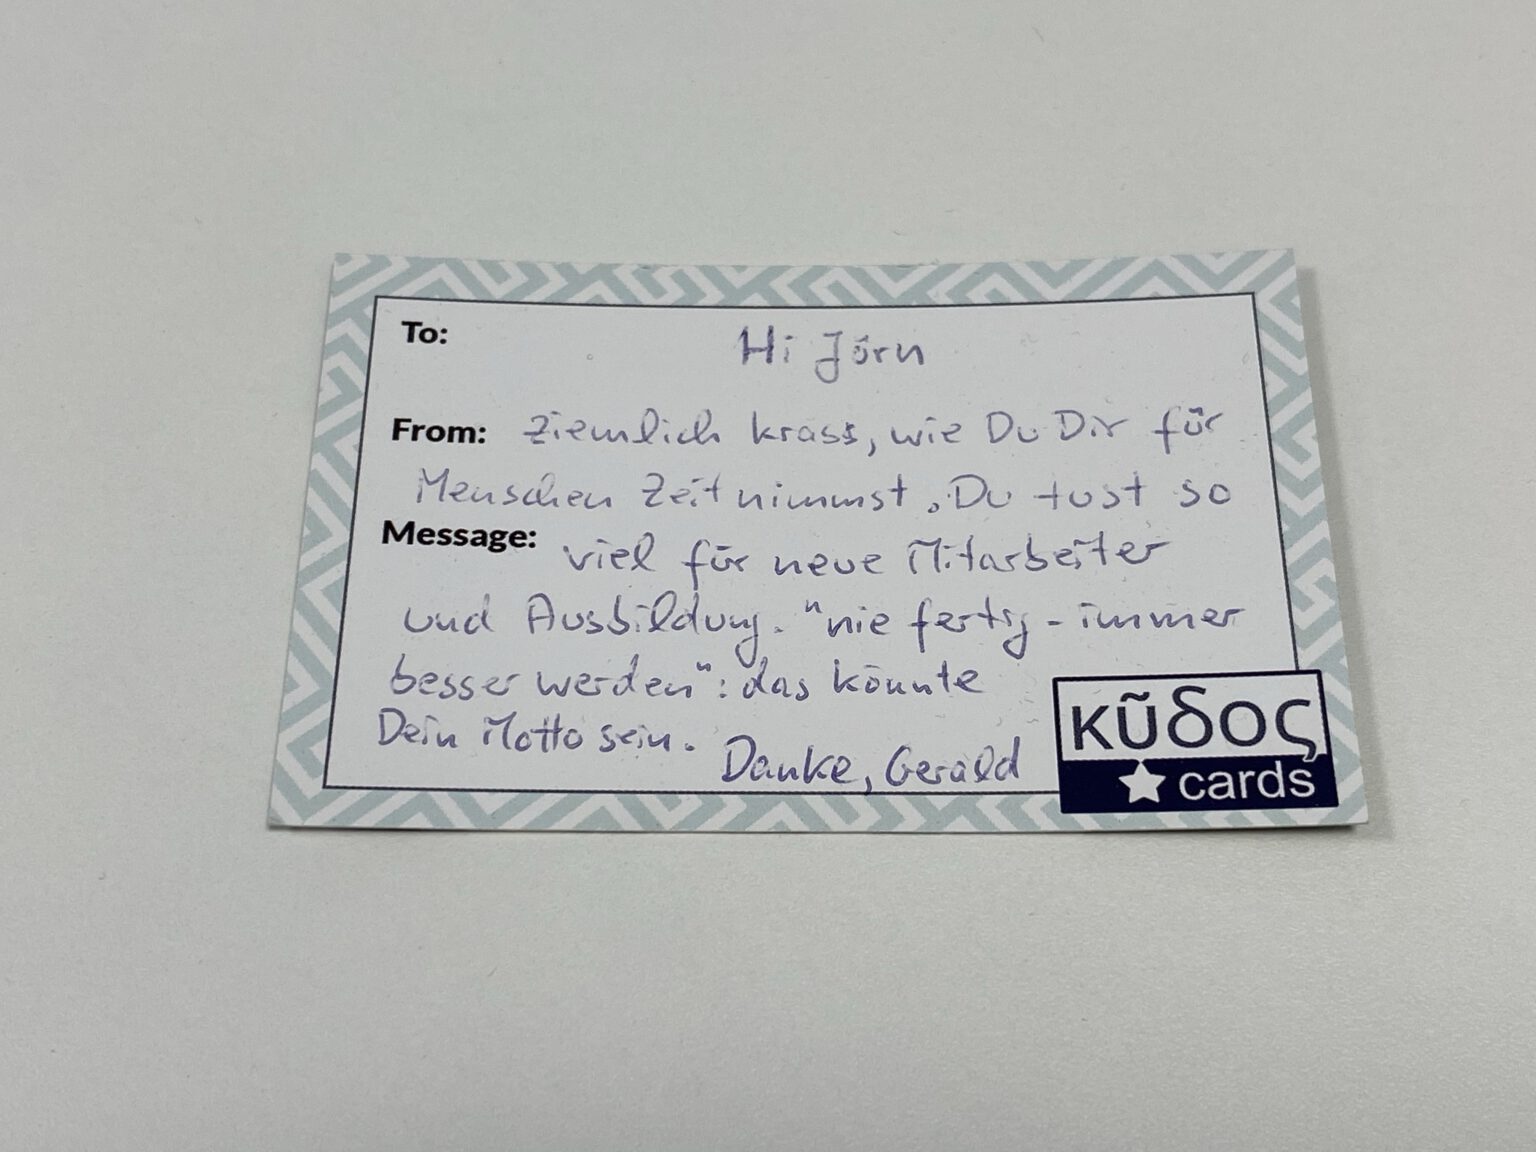 To: Hi Jörn
From: Ziemlich krass, wie Du Dir für
Menschen Zeit nimmst. Du tust so
Message: viel für neue Mitarbeiter
und Ausbildung. "nie fertig - immer
besser werden": das könnte
Dein Motto sein. Danke, Gerald
κῦδος
cards